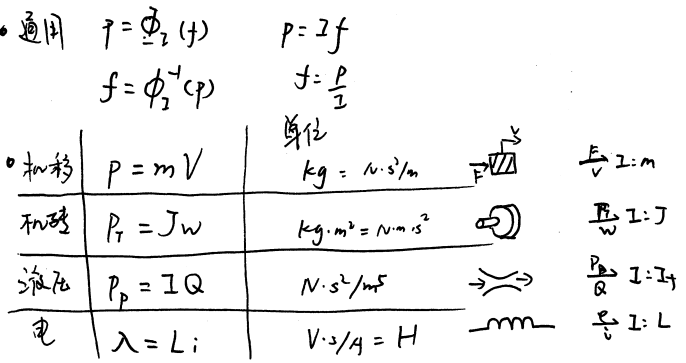 • 通用 p = Φ_I (f) p = I f
f = Φ_I^{-1} (p) f = p/I
单位
• 机移 p = m V kg = N·s²/m F V F/V I:m
P_T = J w kg·m² = N·m·s² /w I:J
液压 P_p = I Q N·s²/m⁵ P_p/Q I:I_f
电 λ = L i V·s/A = H e/i I:L